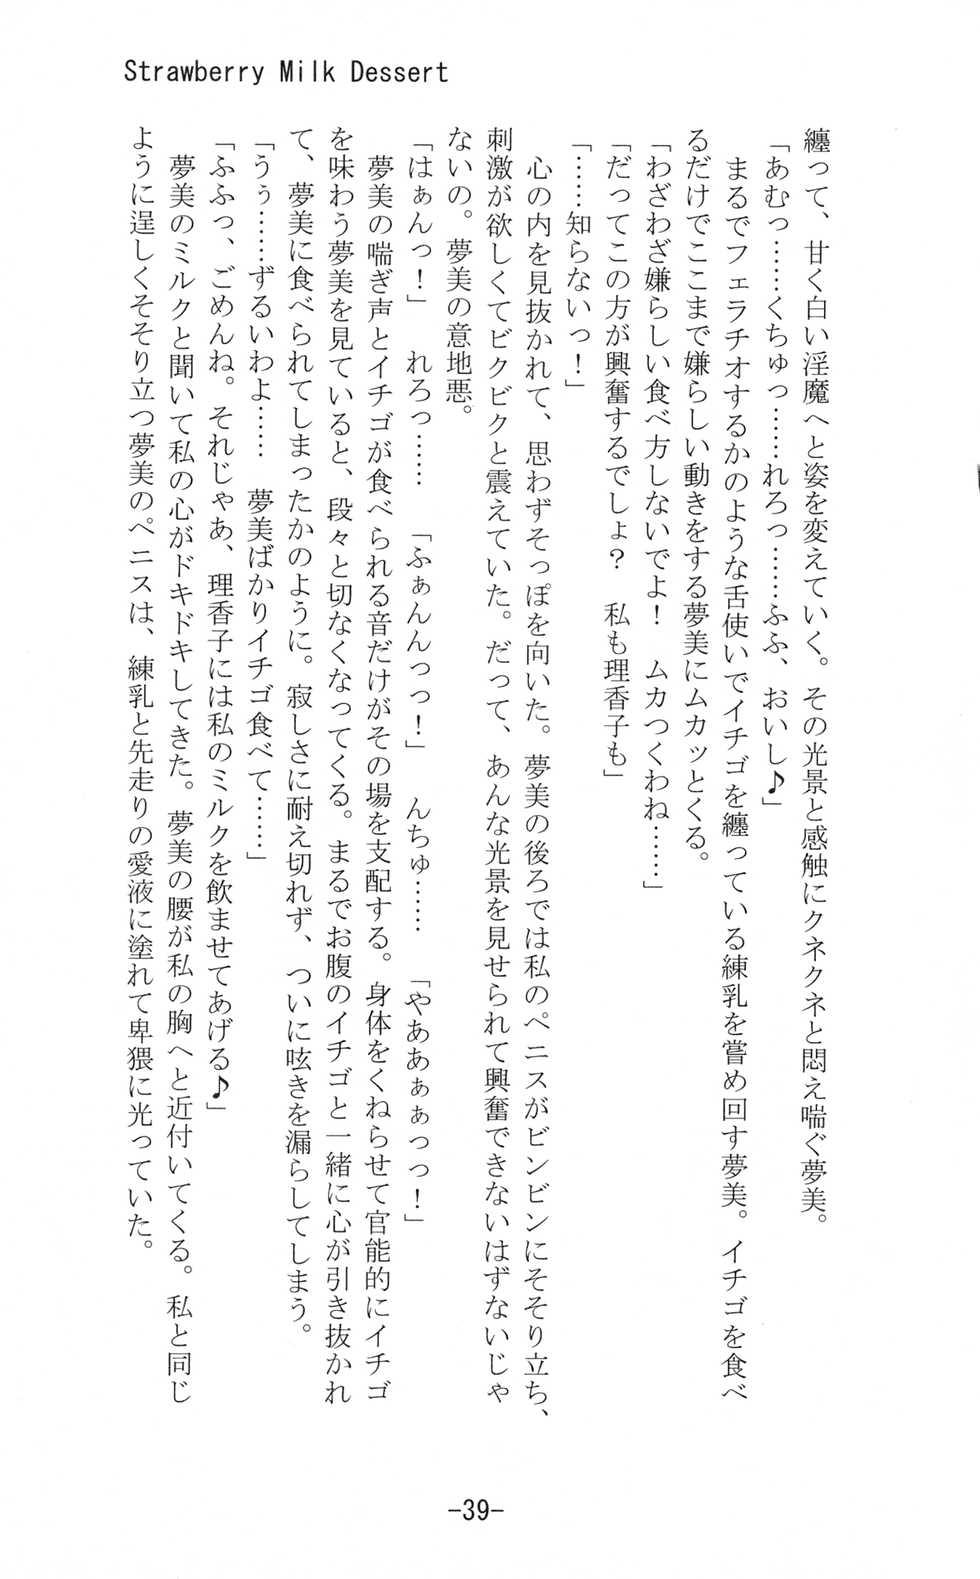 Strawberry Milk Dessert
纏って、甘く白い淫魔へと姿を変えていく。その光景と感触にクネクネと悶え喘ぐ夢美。
「あむっ……くちゅっ……れろっ……ふふ、おいし♪」
まるでフェラチオするかのような舌使いでイチゴを纏っている練乳を嘗め回す夢美。イチゴを食べ
るだけでここまで嫌らしい動きをする夢美にムカッとくる。
「わざわざ嫌らしい食べ方しないでよ！　ムカつくわね……」
「だってこの方が興奮するでしょ？　私も理香子も」
「……知らないっ！」
心の内を見抜かれて、思わずそっぽを向いた。夢美の後ろでは私のペニスがビンビンにそそり立ち、
刺激が欲しくてビクビクと震えていた。だって、あんな光景を見せられて興奮できないはずないじゃ
ないの。夢美の意地悪。
「はぁんっ！」　れろっ……　「ふぁんんっっ！」　んちゅ……　「やああぁぁっっ！」
夢美の喘ぎ声とイチゴが食べられる音だけがその場を支配する。身体をくねらせて官能的にイチゴ
を味わう夢美を見ていると、段々と切なくなってくる。まるでお腹のイチゴと一緒に心が引き抜かれ
て、夢美に食べられてしまったかのように。寂しさに耐え切れず、ついに呟きを漏らしてしまう。
「うぅ……ずるいわよ……　夢美ばかりイチゴ食べて……」
「ふふっ、ごめんね。それじゃあ、理香子には私のミルクを飲ませてあげる♪」
夢美のミルクと聞いて私の心がドキドキしてきた。夢美の腰が私の胸へと近付いてくる。私と同じ
ように逞しくそそり立つ夢美のペニスは、練乳と先走りの愛液に塗れて卑猥に光っていた。
-39-